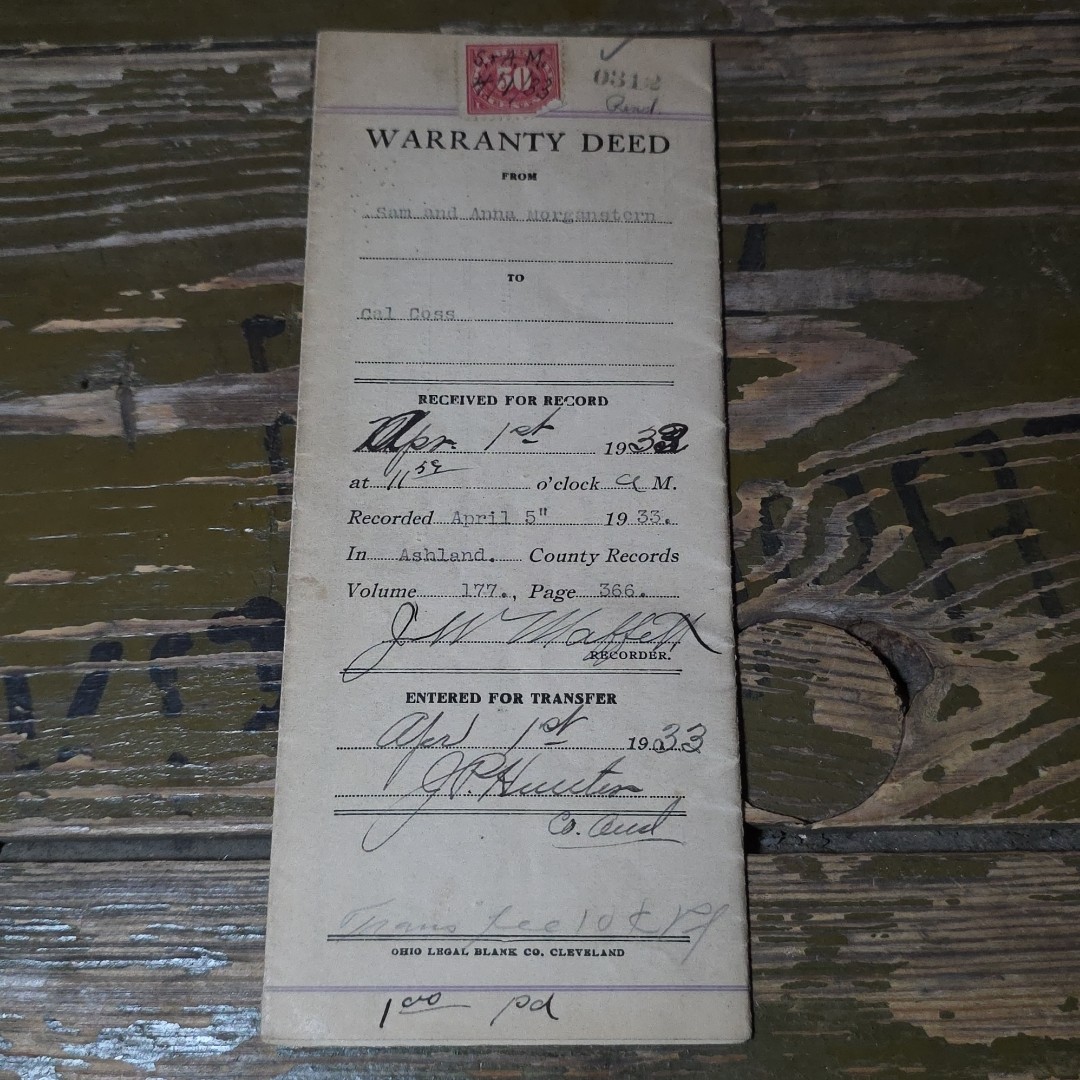 S. & A. M.
50
4/1/33
0312
Read.
WARRANTY DEED
FROM
Sam and Anna Morganstern
TO
Cal Coss
RECEIVED FOR RECORD
Apr. 1st 1933
at 11 59 o'clock a M.
Recorded April 5" 1933.
In Ashland. County Records
Volume 177., Page 366.
J W Maffett
RECORDER.
ENTERED FOR TRANSFER
Apr 1st 1933
J.P. Hunter
Co. Aud
Trans fee 10¢ Pd
OHIO LEGAL BLANK CO. CLEVELAND
1 00 pd